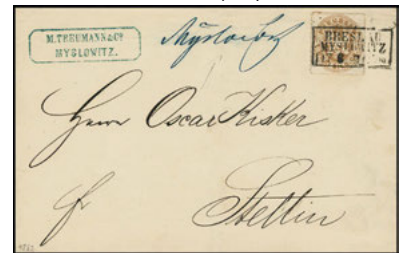 M. TREUMANN & Cº
MYSLOWITZ.
Myslowitz
BRESLAU
MYSLOWITZ
Herrn Oscar Kisker
fr
Stettin